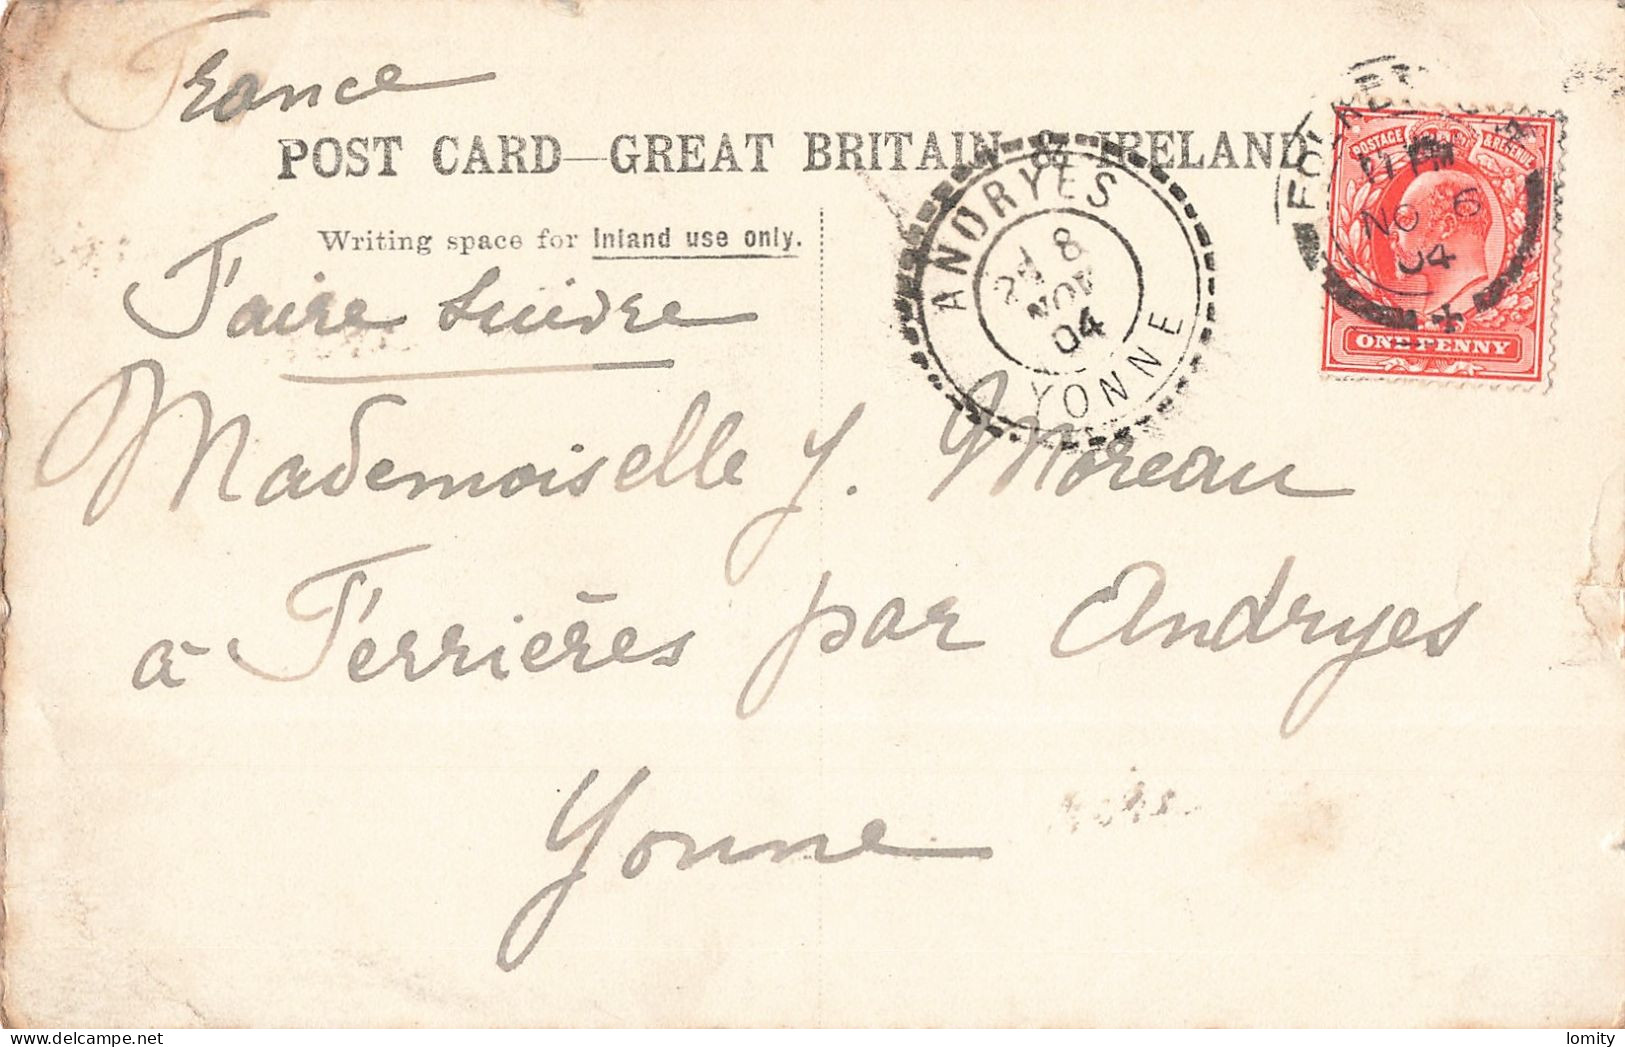 France
POST CARD—GREAT BRITAIN & IRELAND
Writing space for Inland use only.
Faire suivre
ANDRYES
8
NOV
04
YONNE
11 PM
NO 6
04
POSTAGE & REVENUE
ONE PENNY
Mademoiselle J. Moreau
à Ferrières par Andryes
Yonne
lomity